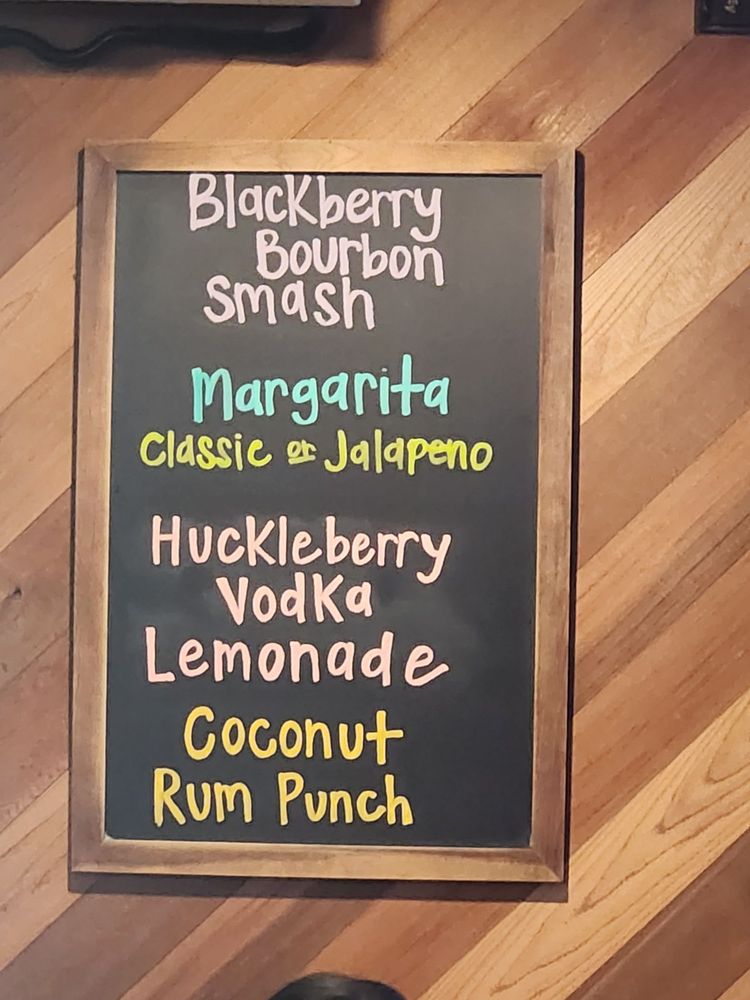 Blackberry
Bourbon
Smash
Margarita
Classic or Jalapeno
Huckleberry
Vodka
Lemonade
Coconut
Rum Punch